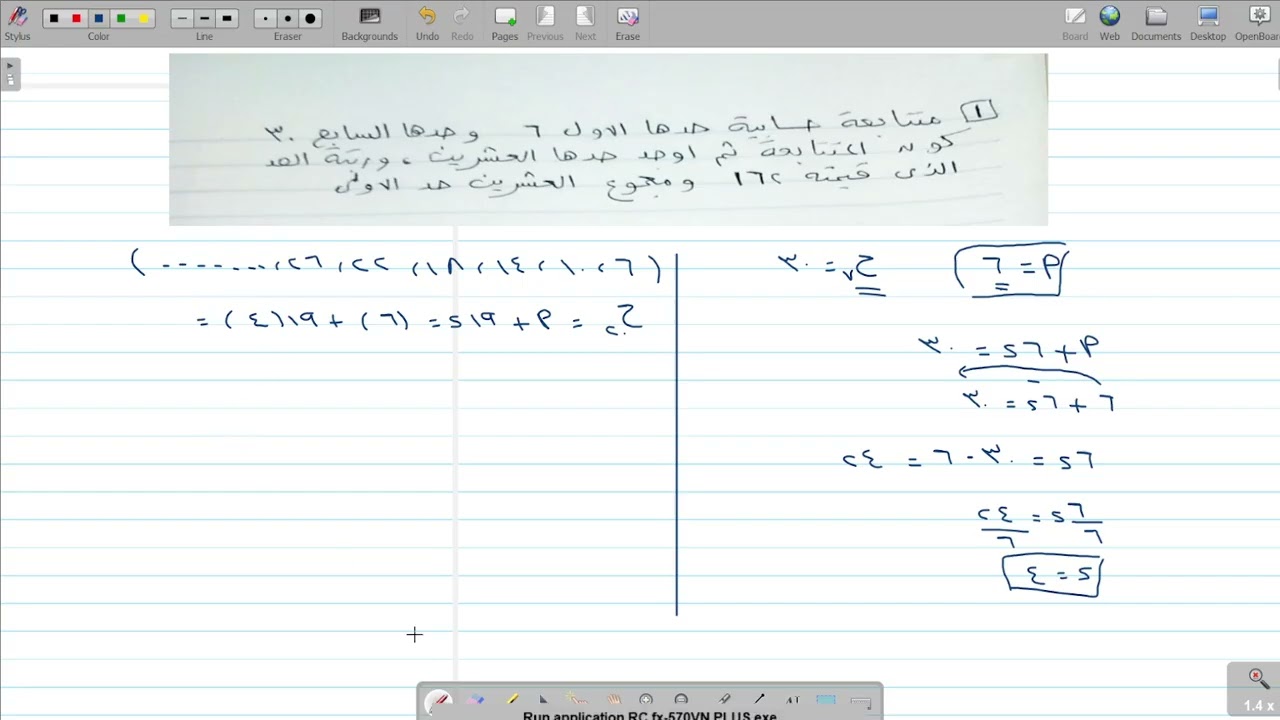 Stylus Color Line Eraser Backgrounds Undo Redo Pages Previous Next Erase Board Web Documents Desktop OpenBoard
١ متتابعة حسابية حدها الاول ٦ وحدها السابع ٣٠
كون المتتابعة ثم اوجد حدها العشرين ، ورتبة الحد
الذى قيمته ١٦٢ ومجموع العشرين حد الاولى
٦ = P
ح٧ = ٣٠
P + ٦د = ٣٠
٦ + ٦د = ٣٠
٦د = ٣٠ - ٦ = ٢٤
٦د/٦ = ٢٤/٦
د = ٤
(٦ ، ١٠ ، ١٤ ، ١٨ ، ٢٢ ، ٢٦ ، .......)
ح٢٠ = P + ١٩د = (٦) + ١٩(٤) =
1.4 x
Run application RC fx-570VN PLUS.exe